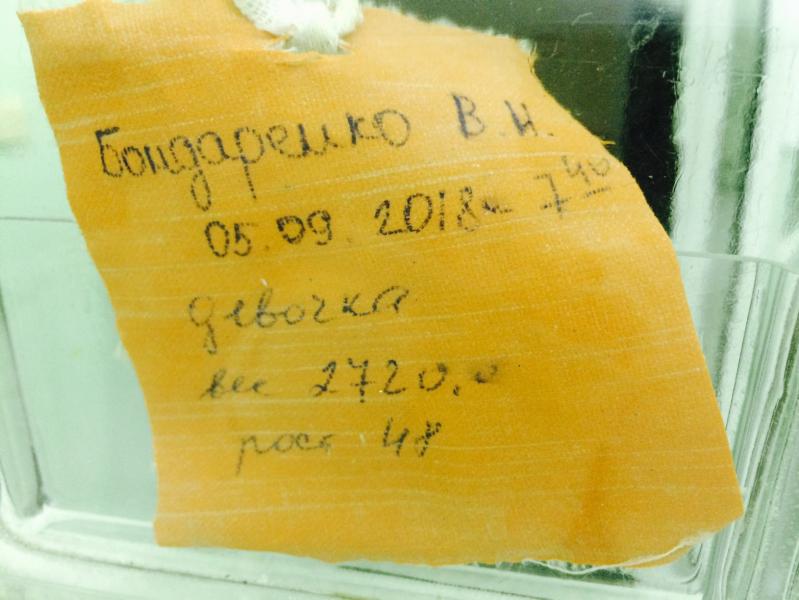 Бондаренко В.Н.
05.09.2018г 7 40
девочка
вес 2720,0
рост 48